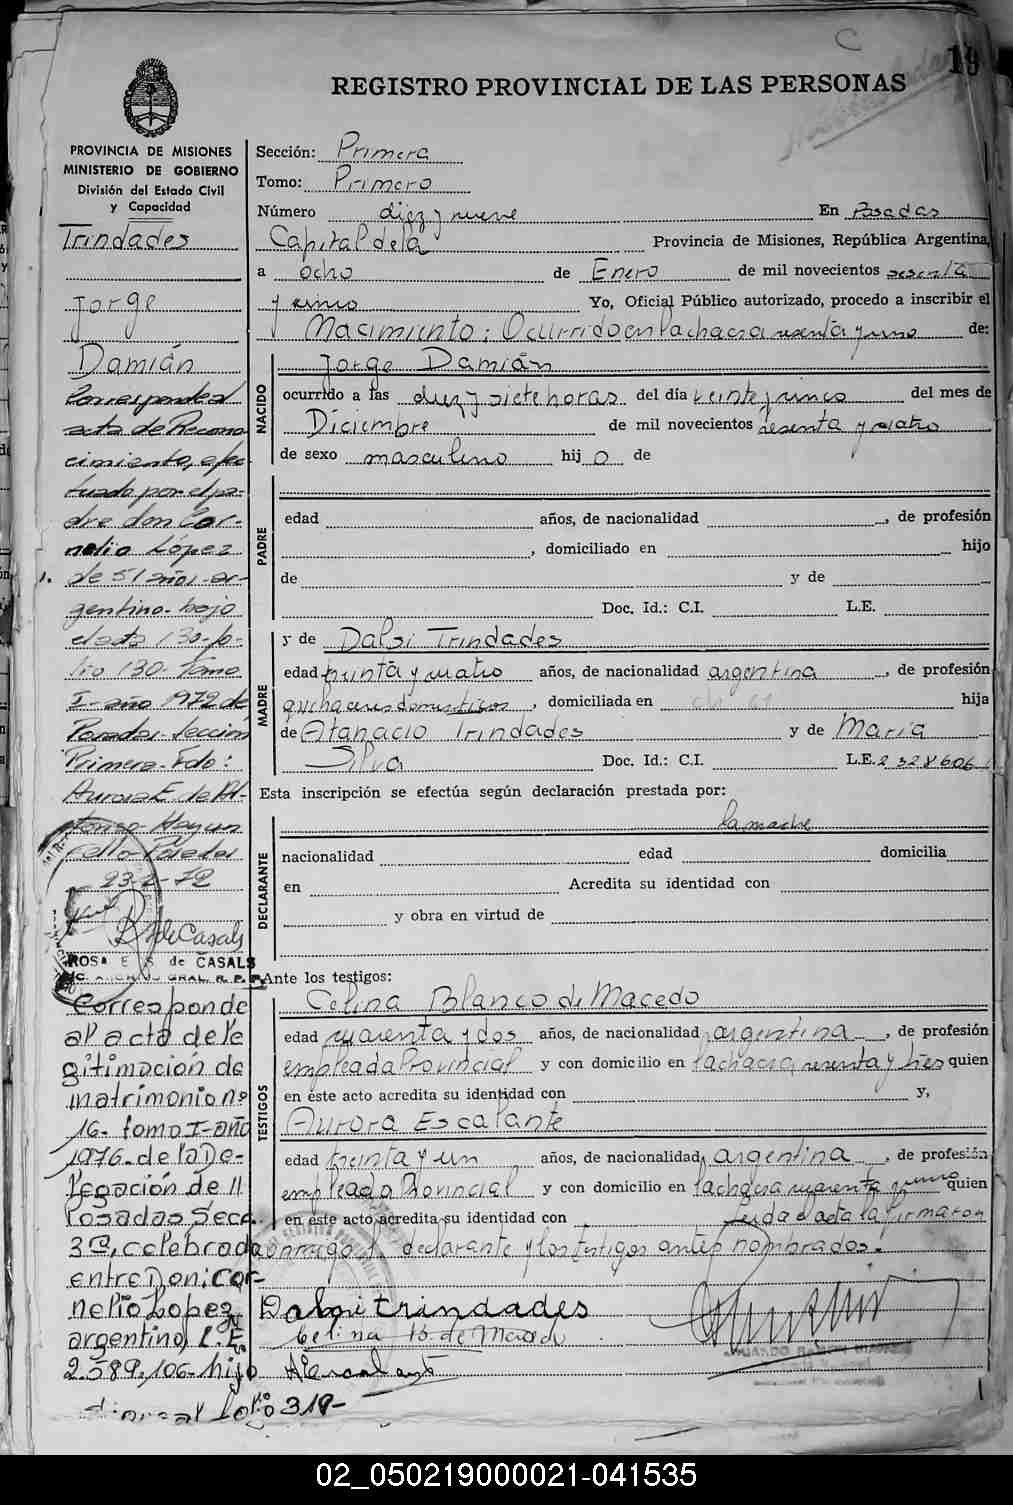 C
19
REGISTRO PROVINCIAL DE LAS PERSONAS
PROVINCIA DE MISIONES
MINISTERIO DE GOBIERNO
División del Estado Civil
y Capacidad
Trindades
Jorge
Damián
Corresponde al
acta de Recono
cimiento, efec
tuado por el pa-
dre don Cor-
nelio López
de 51 años-ar-
gentino-bajo
el acta 130-fo-
lio 130-Tomo
I-año 1972 de
Posadas-Sección
Primera-Fdo:
Aurora E de
23-2-72
R de Casals
ROSA E S. de CASALS
Corresponde
al acta de le
gitimación de
matrimonio nº
16-tomo I-año
1976-de la De-
legación de II
Posadas Secc.
3ª, celebrada
entre Don: Cor-
nelio Lopez
argentino, L.E.
2.589.106-hijo
folio 319-
Sección: Primera
Tomo: Primero
Número diez y nueve En Posadas
Capital de la Provincia de Misiones, República Argentina,
a ocho de Enero de mil novecientos sesenta
y cinco Yo, Oficial Público autorizado, procedo a inscribir el
Nacimiento: Ocurrido en la chacra sesenta y uno de:
NACIDO
Jorge Damián
ocurrido a las diez y siete horas del día veinte y cinco del mes de
Diciembre de mil novecientos sesenta y cuatro
de sexo masculino hij o de
PADRE
edad años, de nacionalidad , de profesión
, domiciliado en hijo
de y de
Doc. Id.: C.I. L.E.
MADRE
y de Dalsi Trindades
edad treinta y cuatro años, de nacionalidad argentina , de profesión
quehaceres domesticos , domiciliada en hija
de Atanacio Trindades y de María
Silva Doc. Id.: C.I. L.E.
Esta inscripción se efectúa según declaración prestada por:
DECLARANTE
la madre
nacionalidad edad domicilia
en Acredita su identidad con
y obra en virtud de
Ante los testigos:
TESTIGOS
Celina Blanco de Macedo
edad cuarenta y dos años, de nacionalidad argentina , de profesión
empleada Provincial y con domicilio en la chacra sesenta y tres quien
en éste acto acredita su identidad con y,
Aurora Escalante
edad treinta y un años, de nacionalidad argentina , de profesión
empleada Provincial y con domicilio en la chacra cuarenta y uno quien
en éste acto acredita su identidad con leida el acta la firmaron
conmigo la declarante y los testigos antes nombrados.
Dalsi trindades
Celina B. de Macedo
A Escalante
02_050219000021-041535